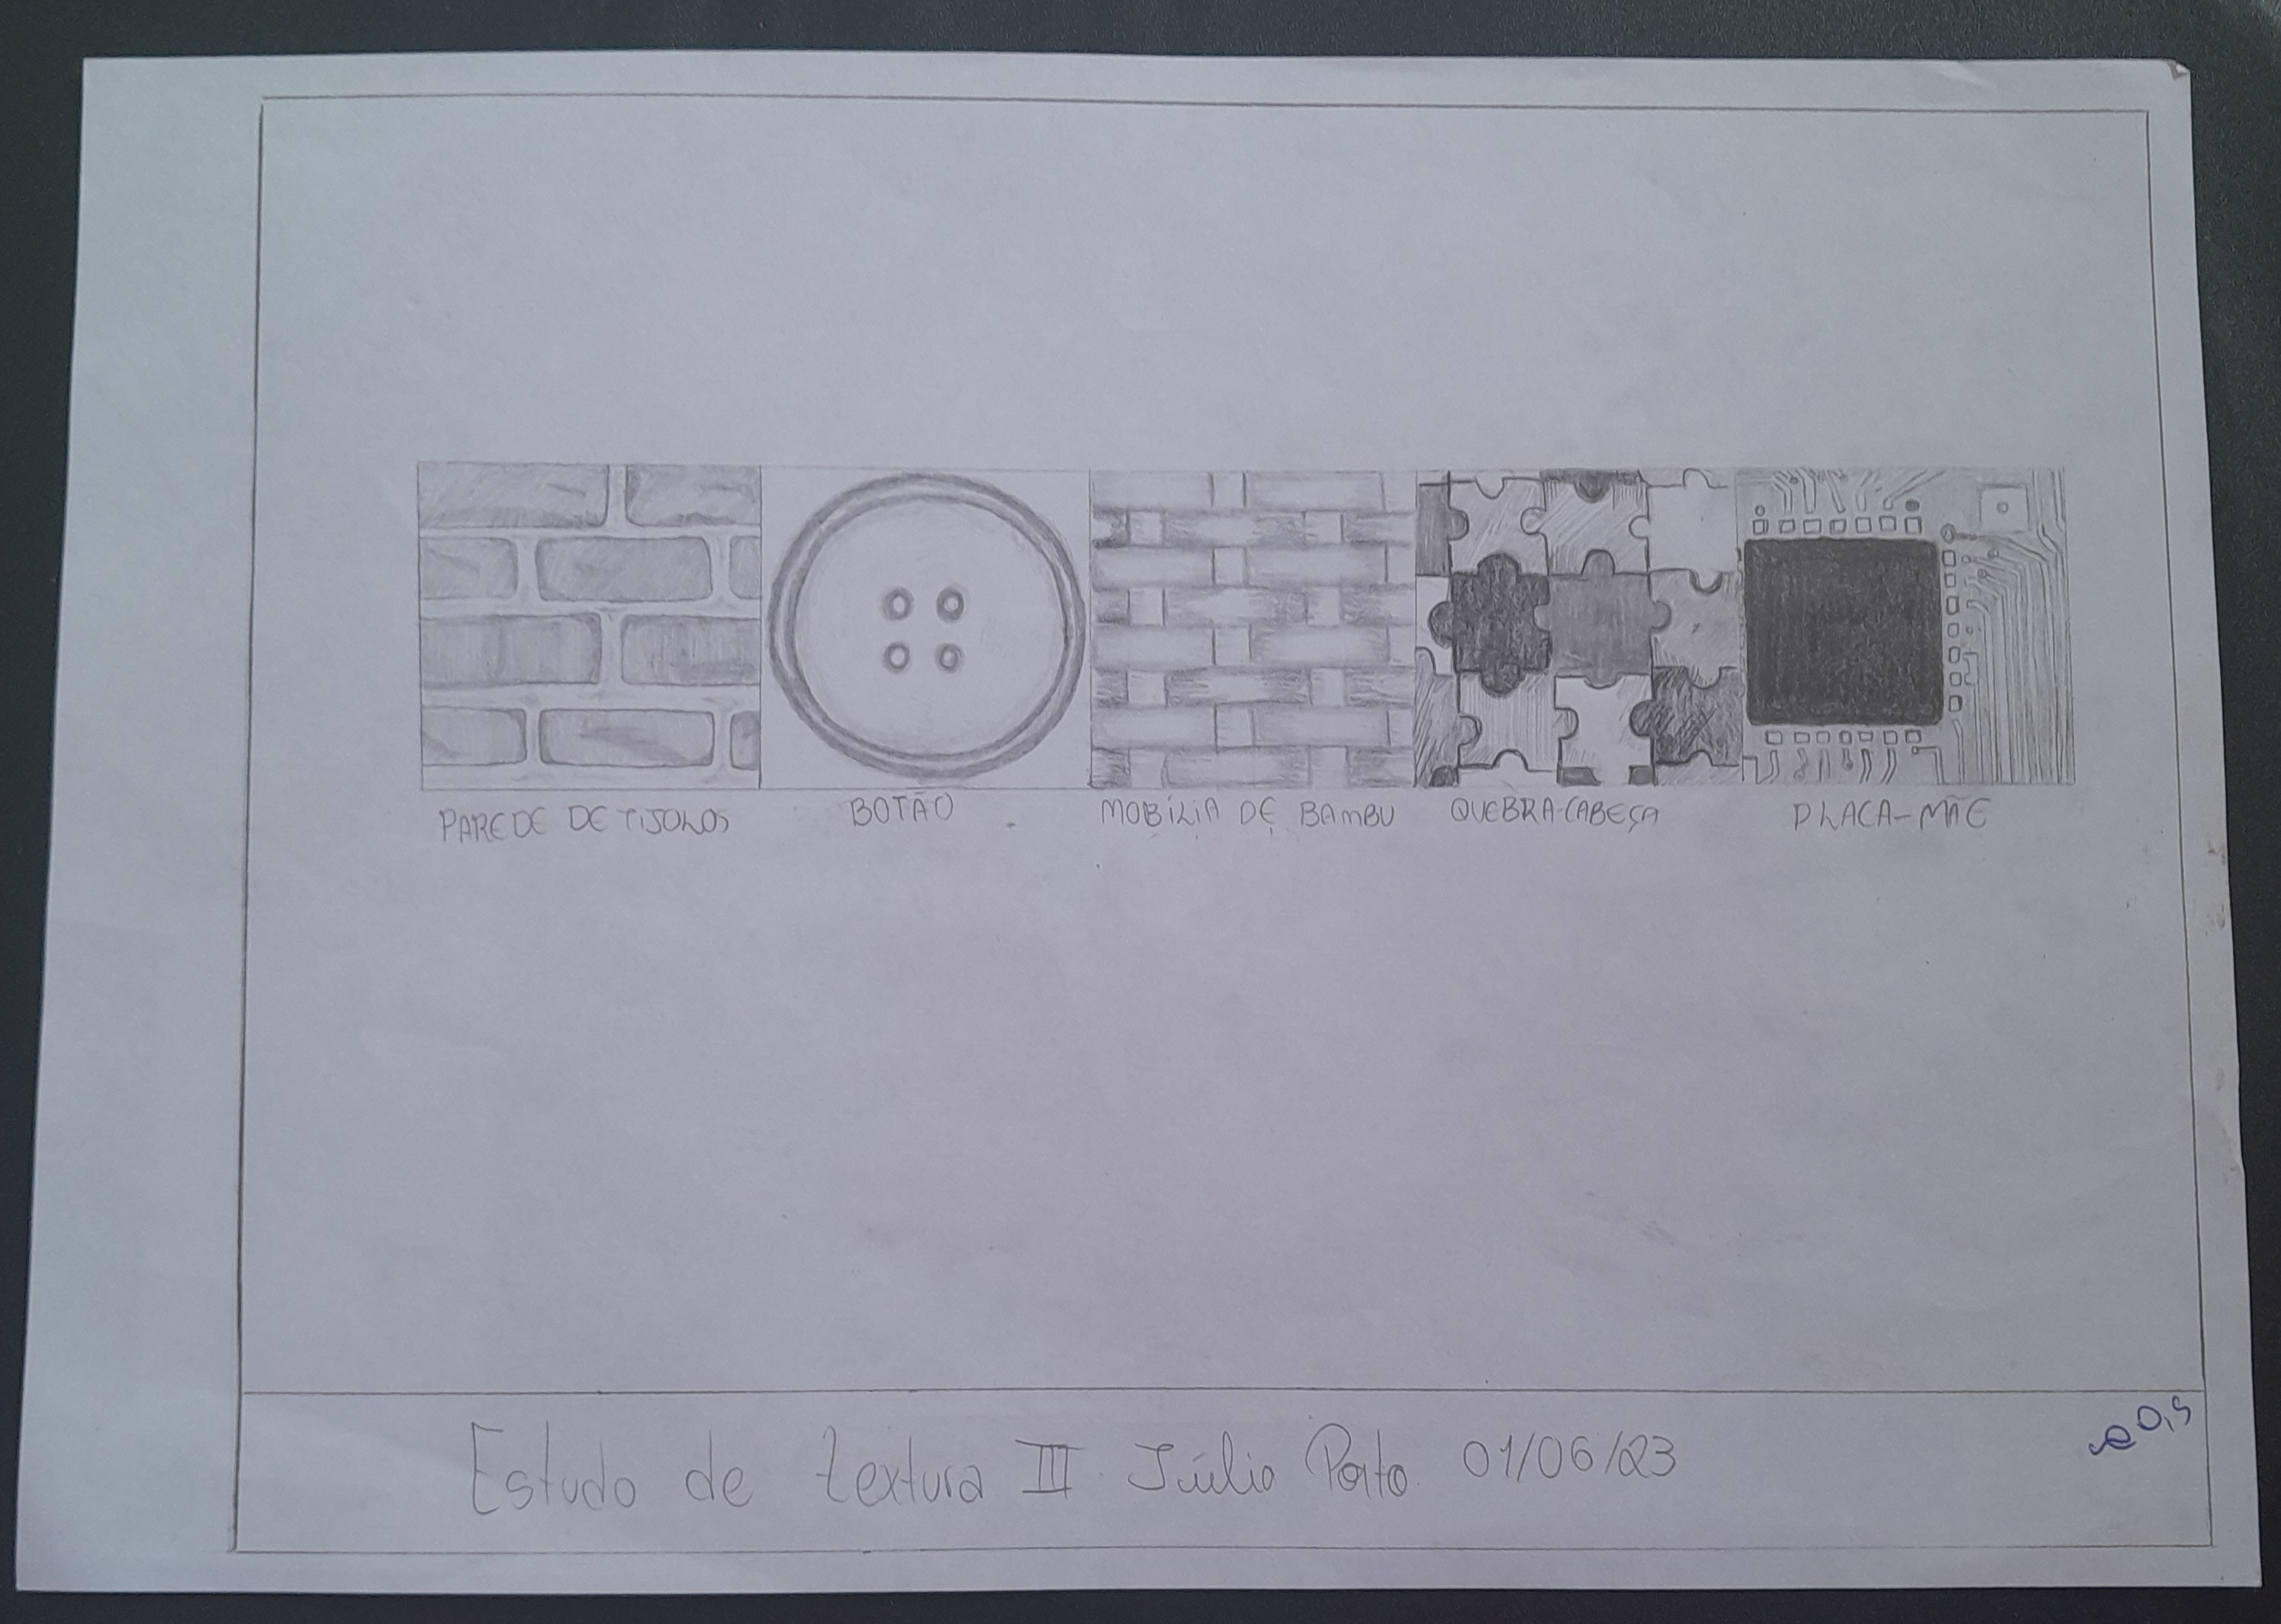 PAREDE DE TIJOLOS BOTÃO MOBÍLIA DE BAMBU QUEBRA-CABEÇA PLACA-MÃE
Estudo de textura III Júlio Porto 01/06/23
0,5